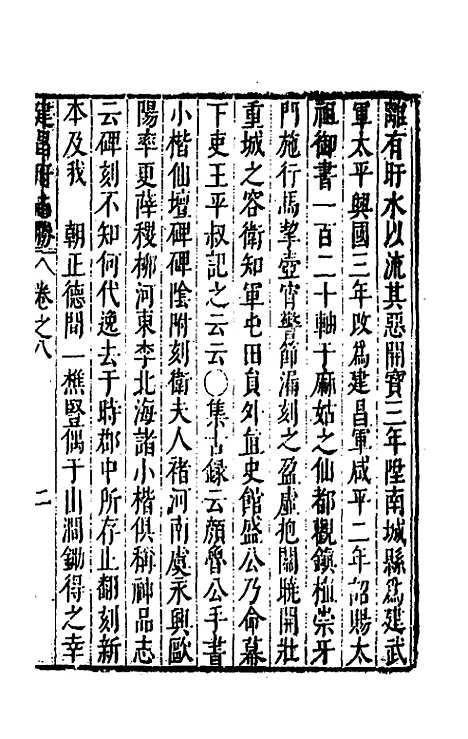 離有盱水以流其惡開寶三年陞南城縣爲建武
軍太平興國三年改爲建昌軍咸平二年詔賜太
祖御書一百二十軸于麻姑之仙都觀鎮植崇牙
門施行馬挈壺宵警節漏刻之盈虛抱關曉開壯
重城之容衛知軍屯田員外直史館盛公乃命幕
下吏王平叔記之云云〇集古錄云顏魯公手書
小楷仙壇碑碑陰附刻衛夫人褚河南虞永興歐
陽率更薛稷柳河東李北海諸小楷俱稱神品志
云碑刻不知何代逸去于時郡中所存止翻刻新
本及我　朝正德間一樵豎偶于山澗鋤得之幸
建昌府志勝　卷之八　二